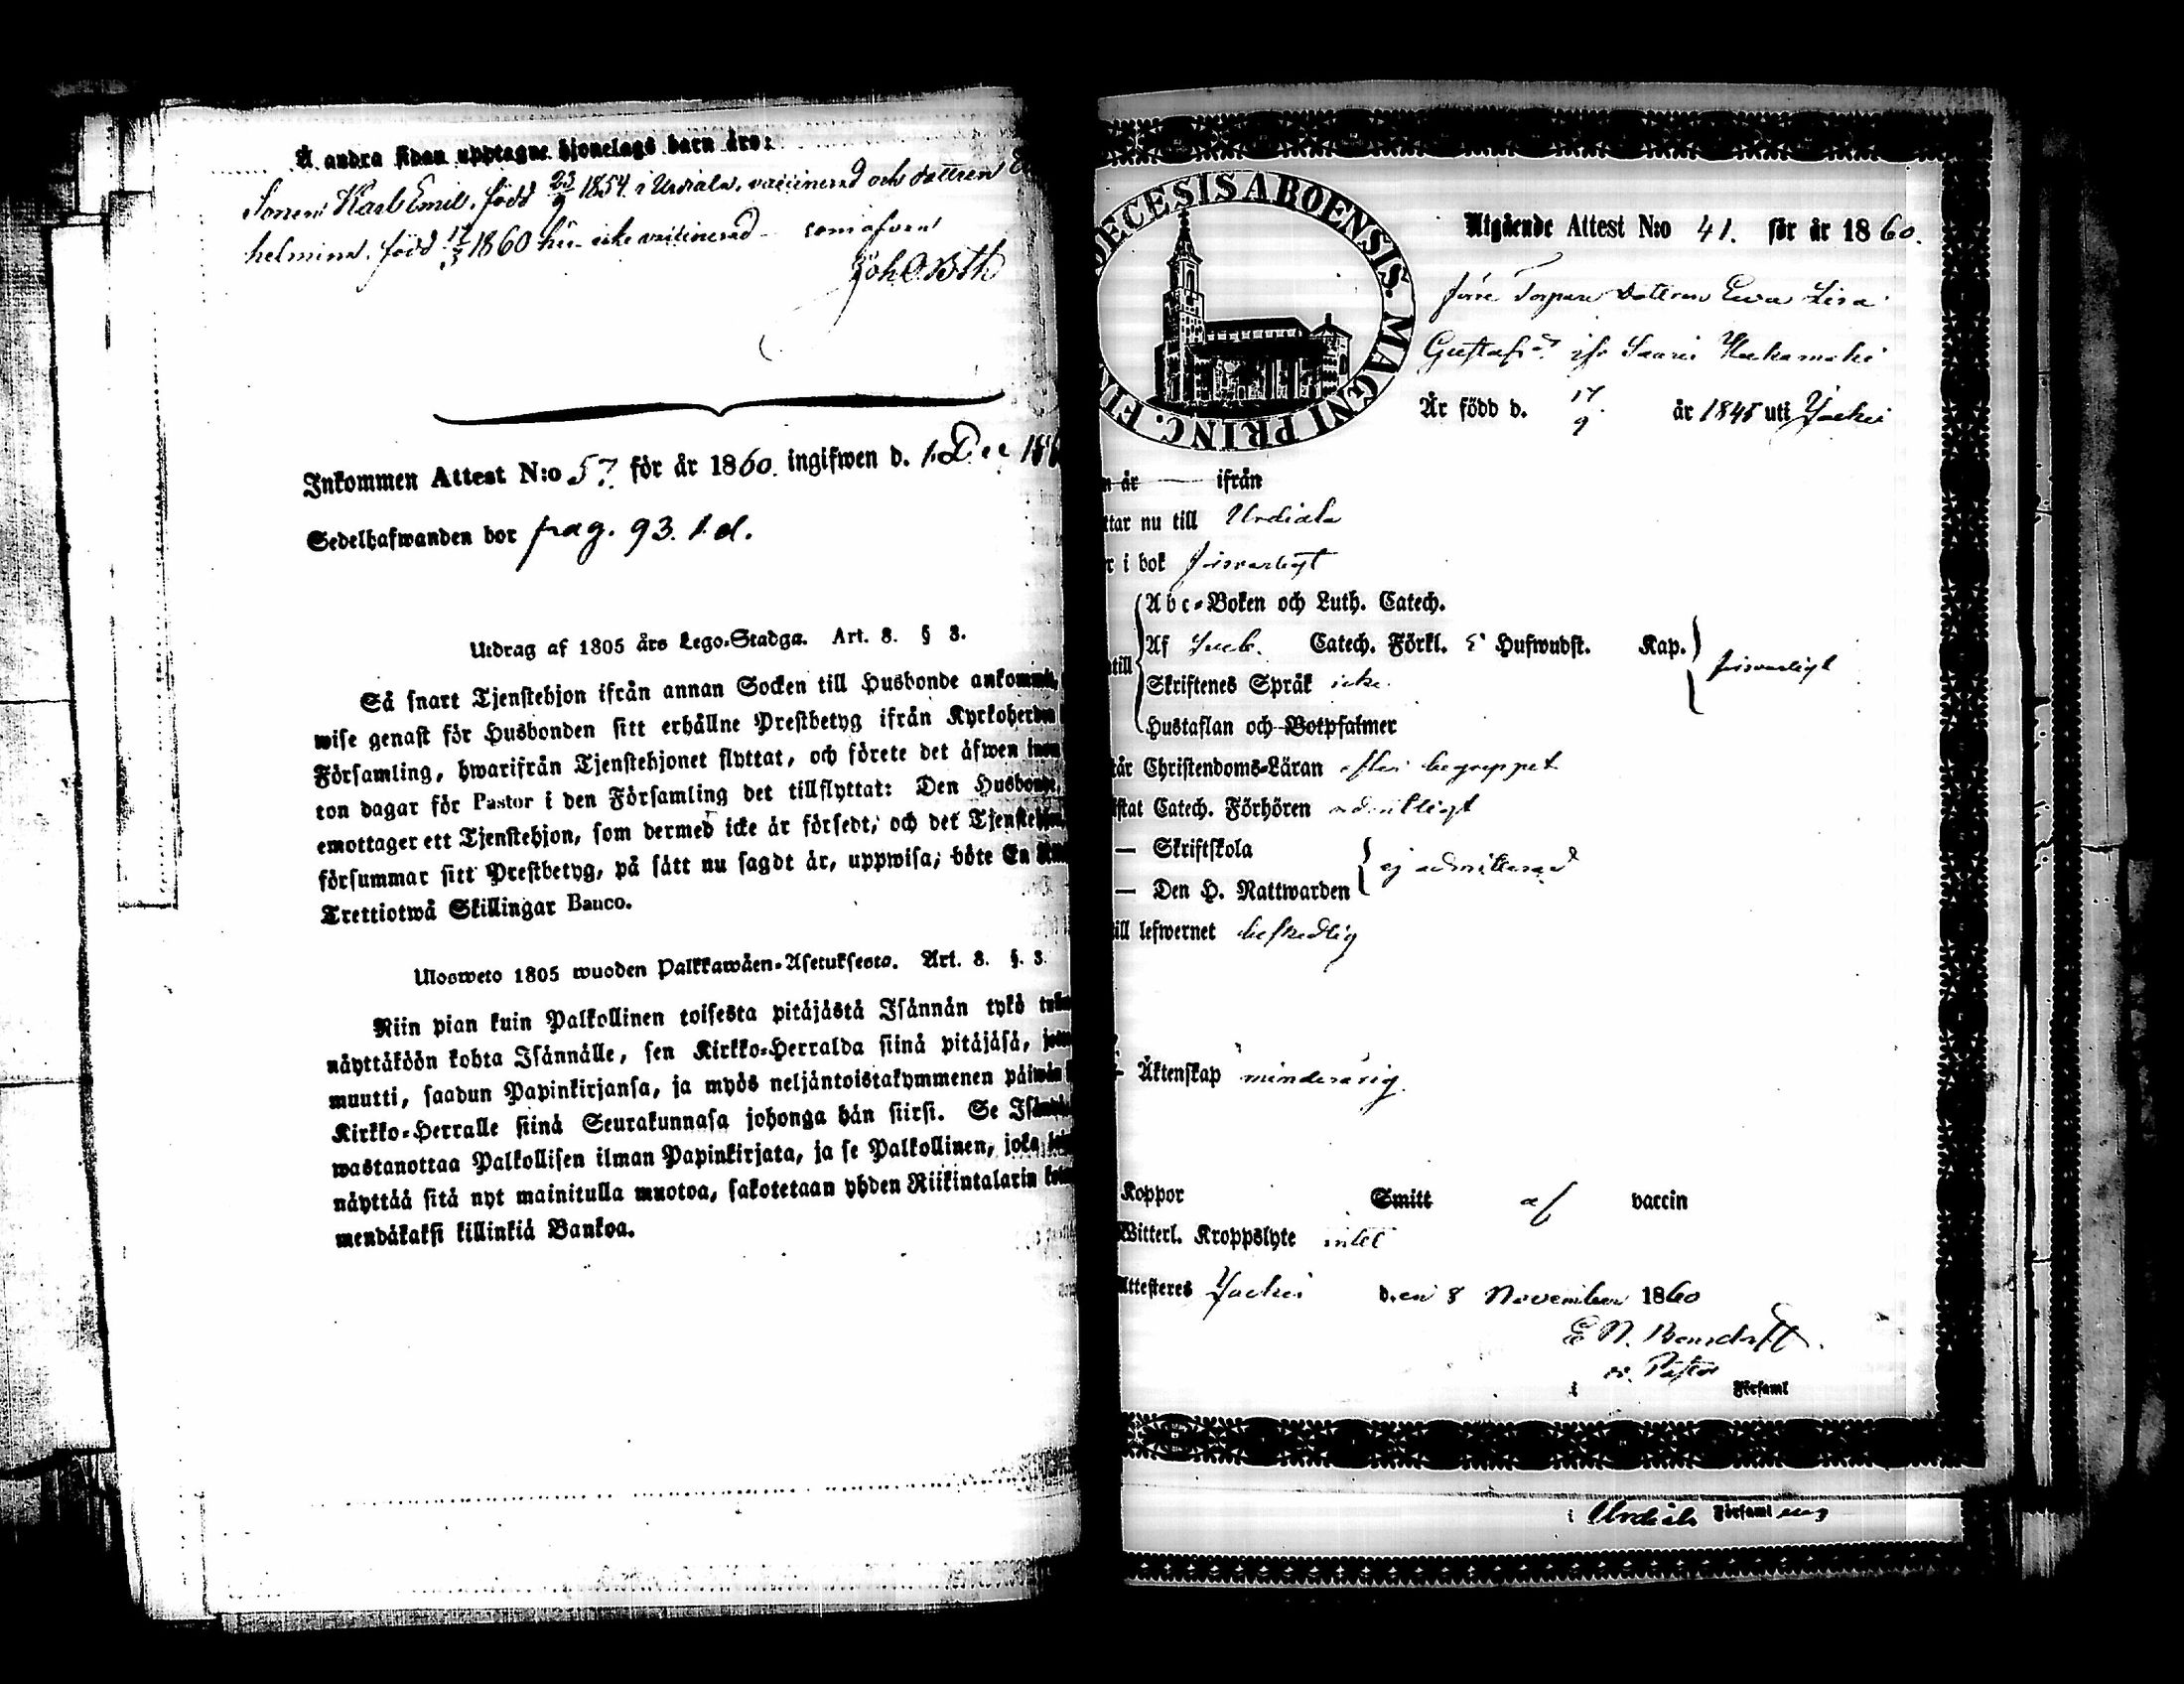 Å andra sidan upptagne hjonelags barn äro:
Sonen Karl Emil, född 23/9 1854 i Urdiala, vaccinerad och dottren
helmina, född 17/3 1860 här icke vaccinerad som ofvan
Inkommen Attest N:o 57 för år 1860. ingifwen d. 1 Dec 18
Sedelhafwanden bor pag. 93. 1 d.
Utdrag af 1805 års Lego-Stadga. Art. 8. § 3.
Så snart Tjenstehjon ifrån annan Socken till Husbonde ankommit,
wise genast för Husbonden sitt erhållne Prestbetyg ifrån Kyrkoherden
Församling, hwarifrån Tjenstehjonet flyttat, och förete det äfwen inom
ton dagar för Pastor i den Församling det tillflyttat: Den Husbonde,
emottager ett Tjenstehjon, som dermed icke är försedt, och det Tjenstehjon,
försummar sitt Prestbetyg, på sätt nu sagdt är, uppwisa, böte En
Trettiotwå Skillingar Banco.
Ulosweto 1805 wuoden Palkkawäen-Asetuksesta. Art. 8. §. 3.
Niin pian kuin Palkollinen toisesta pitäjästä Isännän tykö
näyttäköön kohta Isännälle, sen Kirkko-Herralda siinä pitäjäsä,
muutti, saadun Papinkirjansa, ja myös neljäntoistakymmenen päiwän
Kirkko-Herralle siinä Seurakunnasa johonga hän siirsi. Se
wastanottaa Palkollisen ilman Papinkirjata, ja se Palkollinen, joka
näyttää sitä nyt mainitulla muotoa, sakotetaan yhden Riikintalarin
mendäkaksi killinkiä Bankoa.
DECESIS ABOENSIS. MAGNI PRINC. FIN
Utgående Attest N:o 41. för år 1860.
förre Torpare dottren Ewa Lisa
Gustafsdr ifr Sauris
Är född d. 17/9. år 1845 uti Jockis
n år — ifrån
ttar nu till Urdiala
r i bok försvarligt
Abc-Boken och Luth. Catech.
Af Catech. Förkl. 5 Hufwudst. Kap.
försvarligt
till
Skriftenes Språk icke
Hustaflan och Botpsalmer
tår Christendoms-Läran efter begreppet
istat Catech. Förhören ordentligt
— Skriftskola
ej admitterad
— Den H. Nattwarden
ill lefwernet beskedlig
Äktenskap minderårig.
Koppor Smitt af vaccin
Witterl. Kroppslyte intet
Attesteres Jockis den 8 November 1860
v. Pastor
i Församl
i Urdiala Församl ing